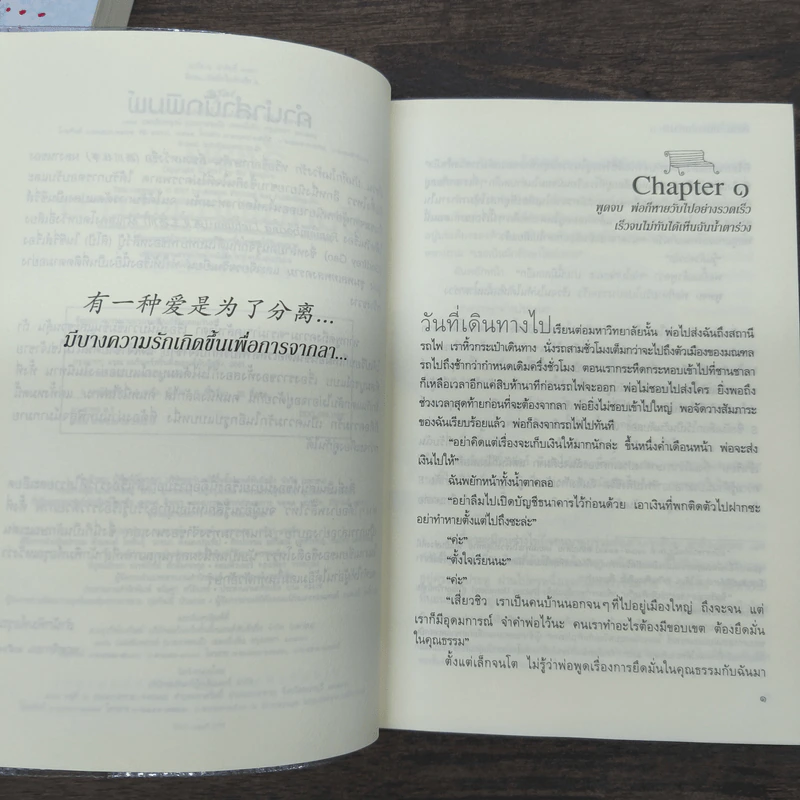 有一种爱是为了分离...
มีบางความรักเกิดขึ้นเพื่อการจากลา...
Chapter ๑
พูดจบ พ่อก็หายวับไปอย่างรวดเร็ว
เร็วจนไม่ทันได้เห็นฉันน้ำตาร่วง
วันที่เดินทางไปเรียนต่อมหาวิทยาลัยนั้น พ่อไปส่งฉันถึงสถานี
รถไฟ เราหิ้วกระเป๋าเดินทาง นั่งรถสามชั่วโมงเต็มกว่าจะไปถึงตัวเมืองของมณฑล
รถไปถึงช้ากว่ากำหนดเดิมครึ่งชั่วโมง ตอนเรากระหืดกระหอบเข้าไปที่ชานชาลา
ก็เหลือเวลาอีกแค่สิบห้านาทีก่อนรถไฟจะออก พ่อไม่ชอบไปส่งใคร ยิ่งพอถึง
ช่วงเวลาสุดท้ายก่อนที่จะต้องจากลา พ่อยิ่งไม่ชอบเข้าไปใหญ่ พอจัดวางสัมภาระ
ของฉันเรียบร้อยแล้ว พ่อก็ลงจากรถไฟไปทันที
“อย่าคิดแต่เรื่องจะเก็บเงินให้มากนักล่ะ ขึ้นหนึ่งค่ำเดือนหน้า พ่อจะส่ง
เงินไปให้”
ฉันพยักหน้าทั้งน้ำตาคลอ
“อย่าลืมไปเปิดบัญชีธนาคารไว้ก่อนด้วย เอาเงินที่พกติดตัวไปฝากซะ
อย่าทำหายตั้งแต่ไปถึงซะล่ะ”
“ค่ะ”
“ตั้งใจเรียนนะ”
“ค่ะ”
“เสี่ยวชิว เราเป็นคนบ้านนอกจนๆ ที่ไปอยู่เมืองใหญ่ ถึงจะจน แต่
เราก็มีอุดมการณ์ จำคำพ่อไว้นะ คนเราทำอะไรต้องมีขอบเขต ต้องยึดมั่น
ในคุณธรรม”
ตั้งแต่เล็กจนโต ไม่รู้ว่าพ่อพูดเรื่องการยึดมั่นในคุณธรรมกับฉันมา
๑